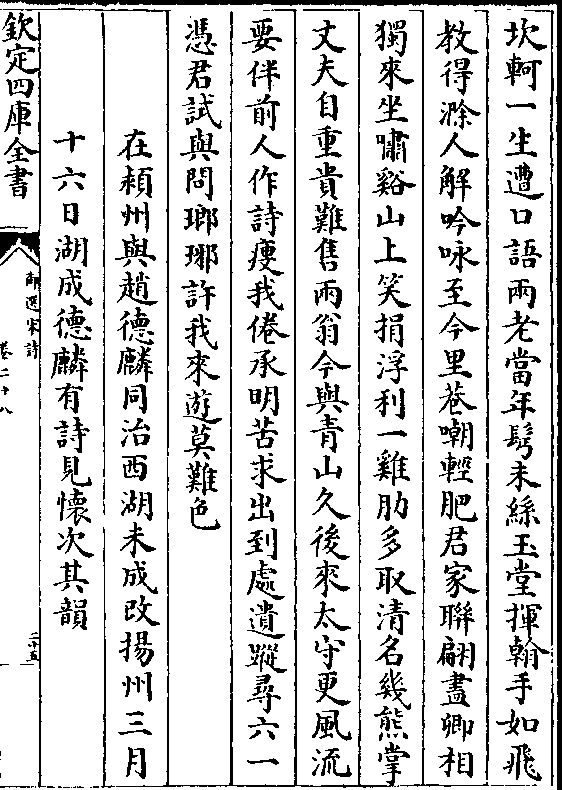 坎軻一生遭口語兩老當年鬂未絲玉堂揮翰手如飛
教得滁人解吟咏至今里巷嘲輕肥君家聯翩盡卿相
獨來坐嘯谿山上笑捐浮利一雞肋多取清名幾熊掌
丈夫自重貴難售兩翁今與青山久後來太守更風流
要伴前人作詩瘦我倦承明苦求出到處遺蹤尋六一
憑君試與問瑯琊許我來遊莫難色
在潁州與趙德麟同治西湖未成改揚州三月
十六日湖成德麟有詩見懷次其韻
欽定四庫全書
御選宋詩
卷二十八
二十五